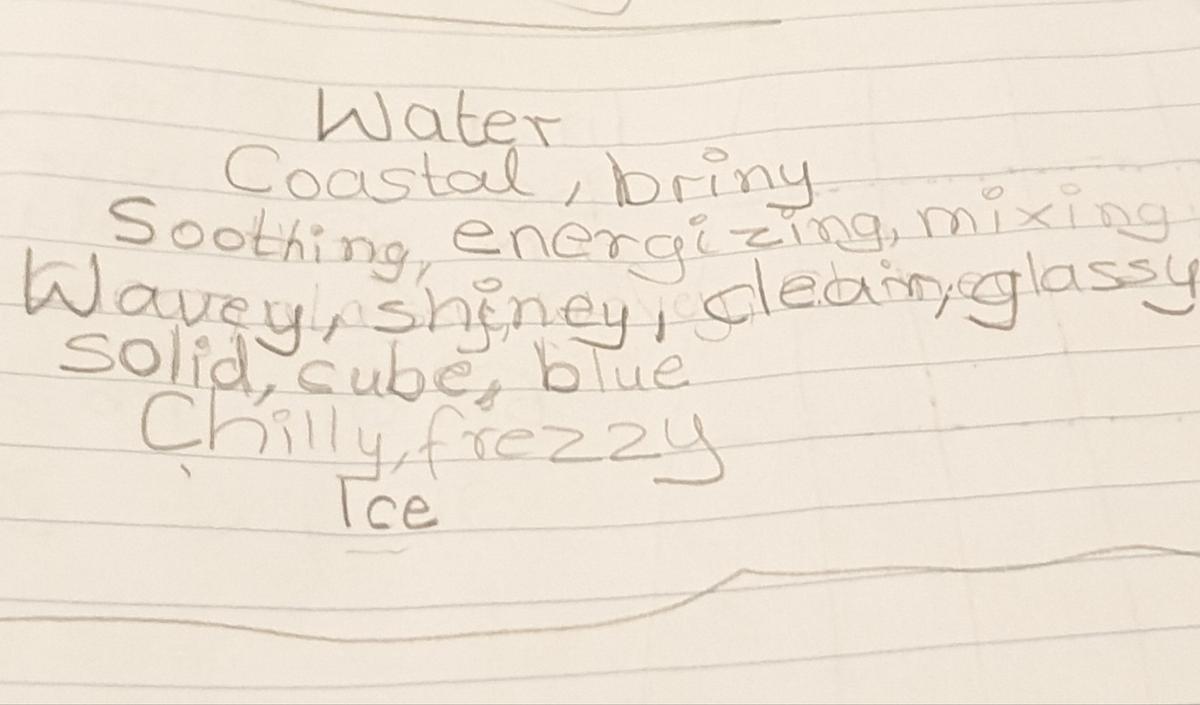 Water
Coastal, briny
Soothing, energizing, mixing
Wavey, shiney, clean, glassy
solid, cube, blue
Chilly, frezzy
Ice